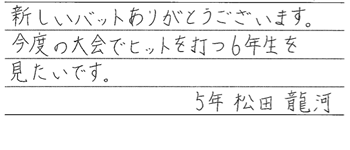 新しいバットありがとうございます。
今度の大会でヒットを打つ6年生を
見たいです。
5年 松田 龍河